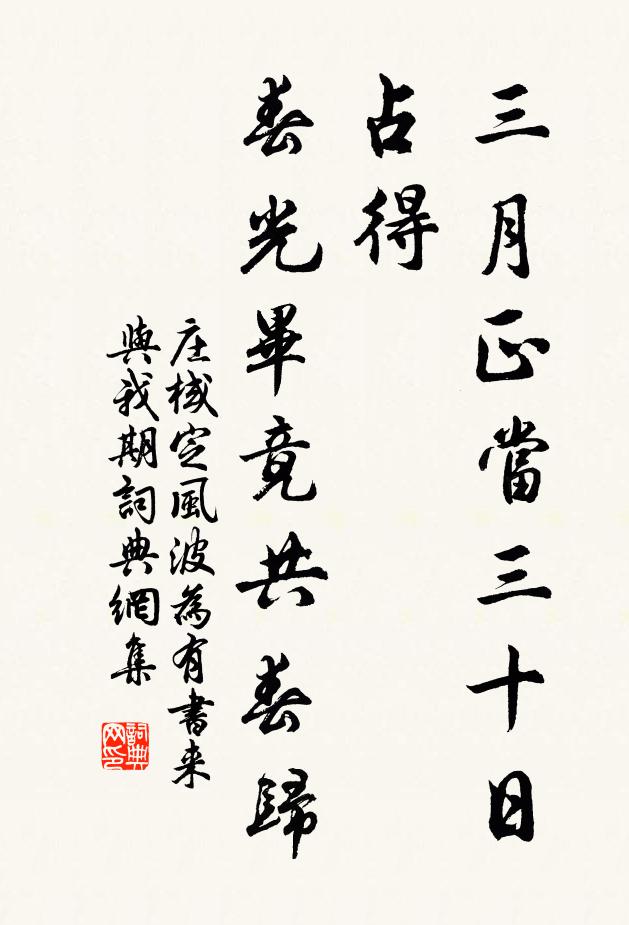 三月正當三十日
占得
春光畢竟共春歸
庄棫定風波為有書来
與我期詞典網集
詞典網印